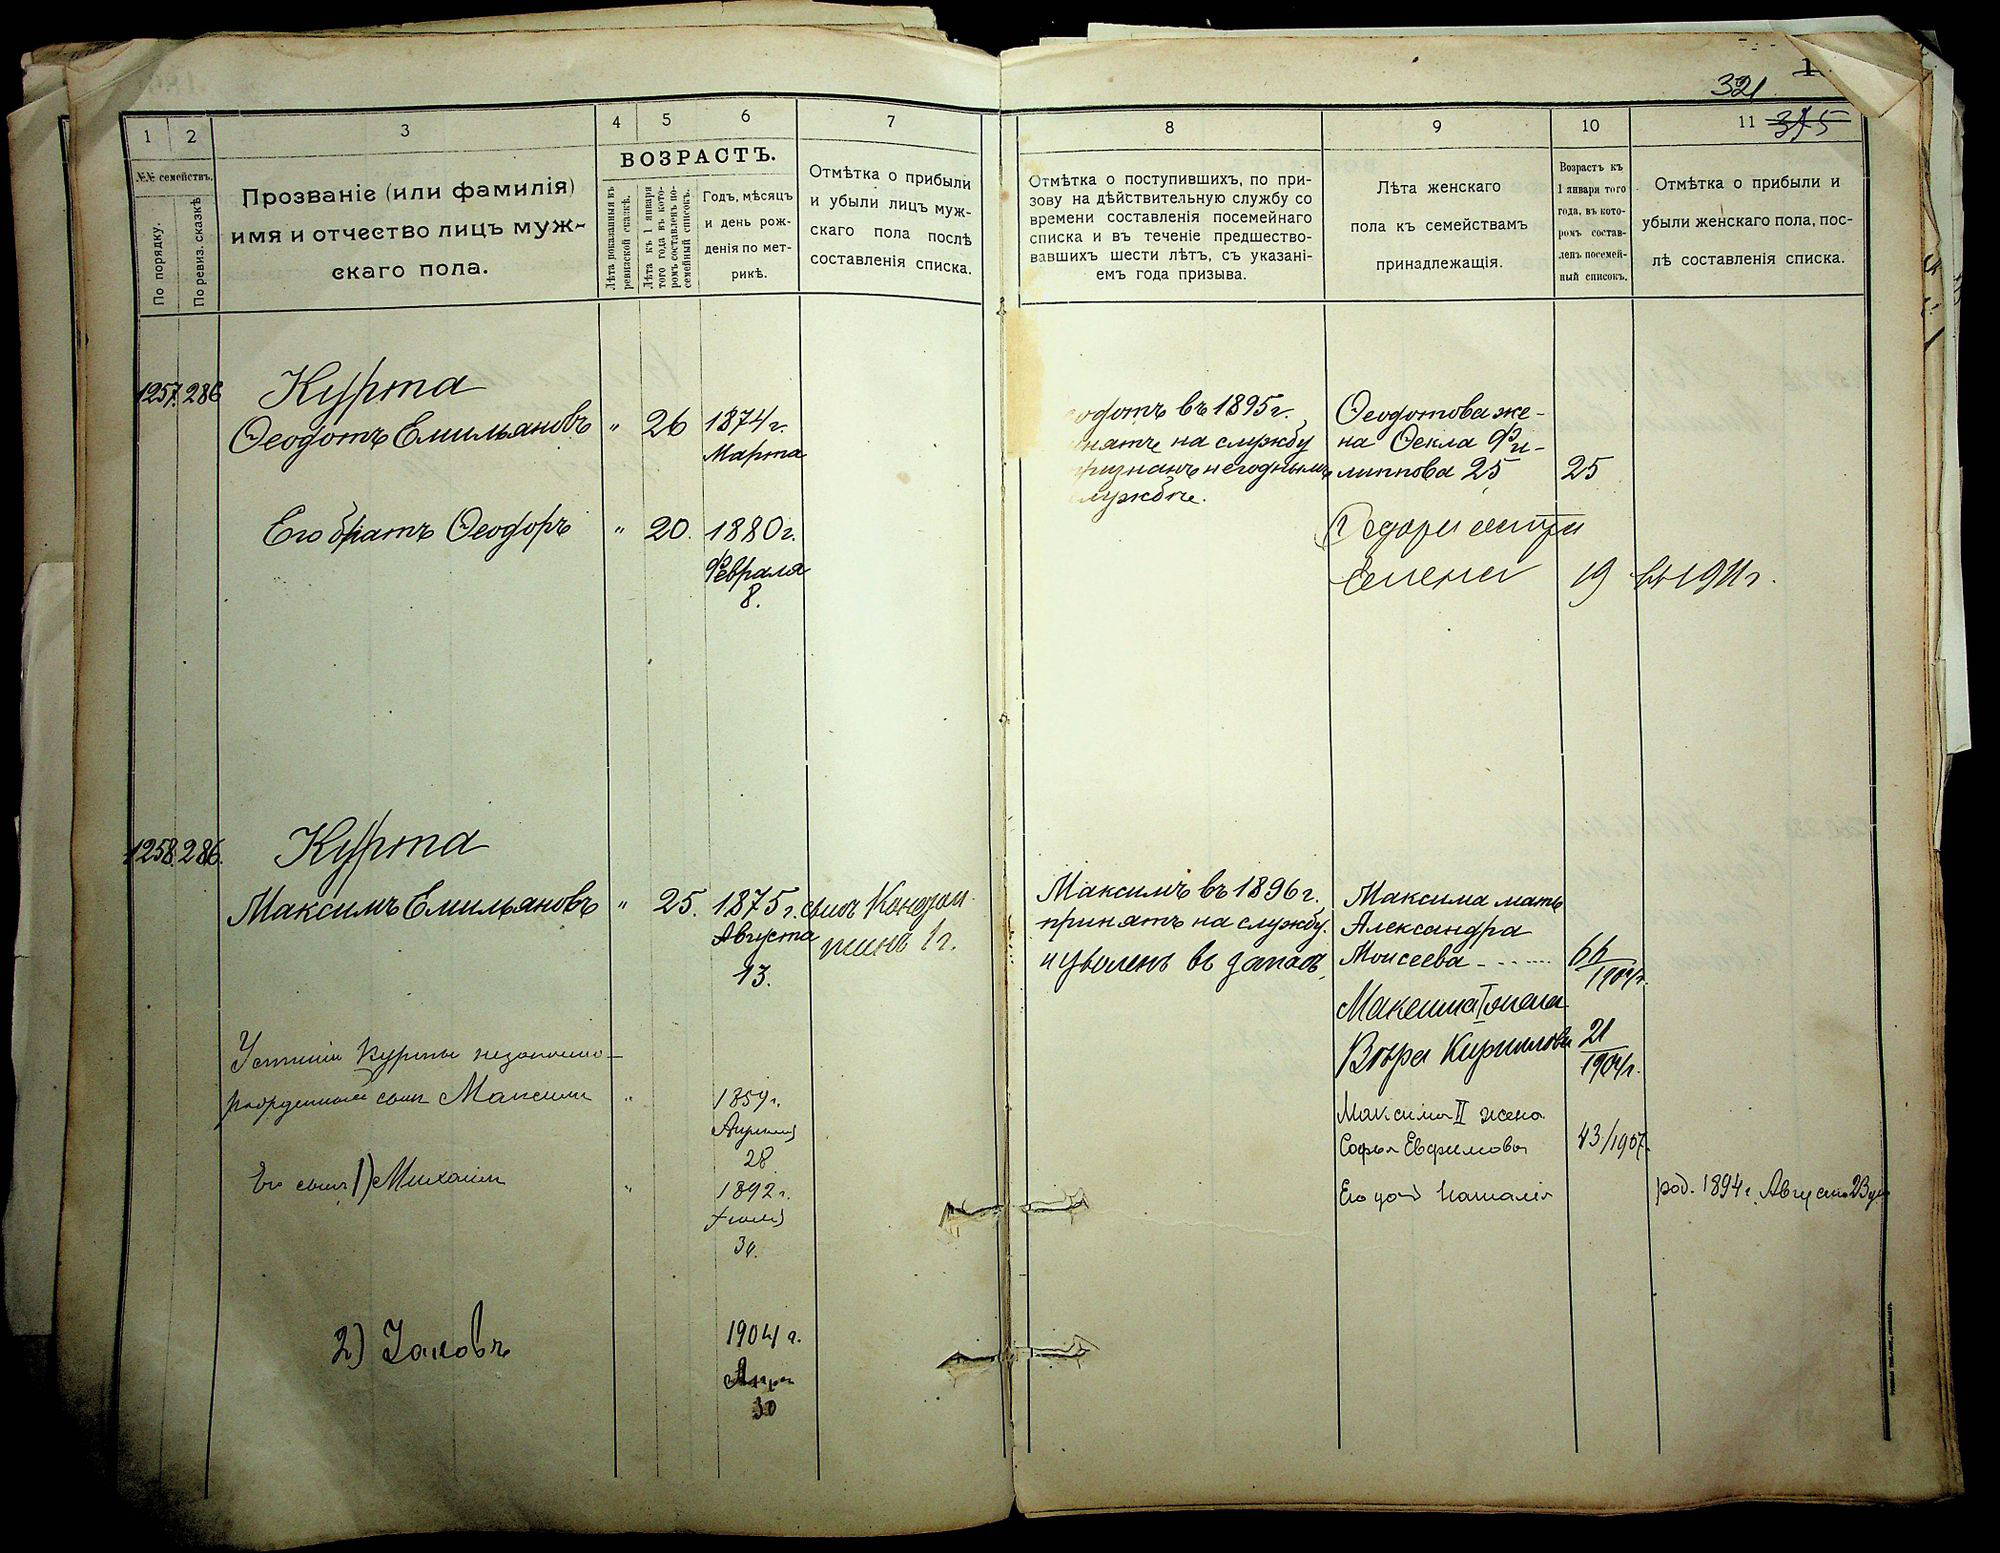 321
1
375
1
2
3
4
5
6
7
№№ семействъ.
По порядку.
По ревиз. сказкѣ
Прозваніе (или фамилія)
имя и отчество лицъ муж-
скаго пола.
ВОЗРАСТЪ.
Лѣта показанныя въ
ревизской сказкѣ.
Лѣта къ 1 января
того года въ кото-
ромъ составленъ по-
семейный списокъ.
Годъ, мѣсяцъ
и день рож-
денія по мет-
рикѣ.
Отмѣтка о прибыли
и убыли лицъ муж-
скаго пола послѣ
составленія списка.
8
9
10
11
Отмѣтка о поступившихъ, по при-
зову на дѣйствительную службу со
времени составленія посемейнаго
списка и въ теченіе предшество-
вавшихъ шести лѣтъ, съ указані-
емъ года призыва.
Лѣта женскаго
пола къ семействамъ
принадлежащія.
Возрастъ къ
1 января того
года, въ кото-
ромъ состав-
ленъ посемей-
ный списокъ.
Отмѣтка о прибыли и
убыли женскаго пола, пос-
лѣ составленія списка.
1257. 286 Курта
Ѳеодотъ Емильяновъ " 26 1874 г.
Марта
Его братъ Ѳеодоръ " 20. 1880 г.
Февраля
8.
одотъ въ 1895 г.
инятъ на службу
признанъ негоднымъ
службѣ.
Ѳеодотова же-
на Ѳекла Фи-
липпова 25 25
Федора сестра
Елена 19 въ 1911 г.
1258. 286. Курта
Максимъ Емильяновъ " 25. 1875 г. сынъ
Августа 1 г.
13.
Максимъ въ 1896 г.
принятъ на службу.
и уволенъ въ запасъ.
Максима мать
Александра
Моисеева 66
1904 г.
Максима I жена
Вѣра Кириллова 21
1904 г.
Устиніи Курты незаконно-
рожденный сынъ Максимъ " 1859 г.
Апрѣля
28
Его сынъ 1) Михаилъ " 1892 г.
Іюля
30.
Максима II жена
Софья Евфимова 43/1907.
Его дочь Наталія род. 1894 г. Августа 23 дня
2) Іаковъ 1904 г.
Апр
30